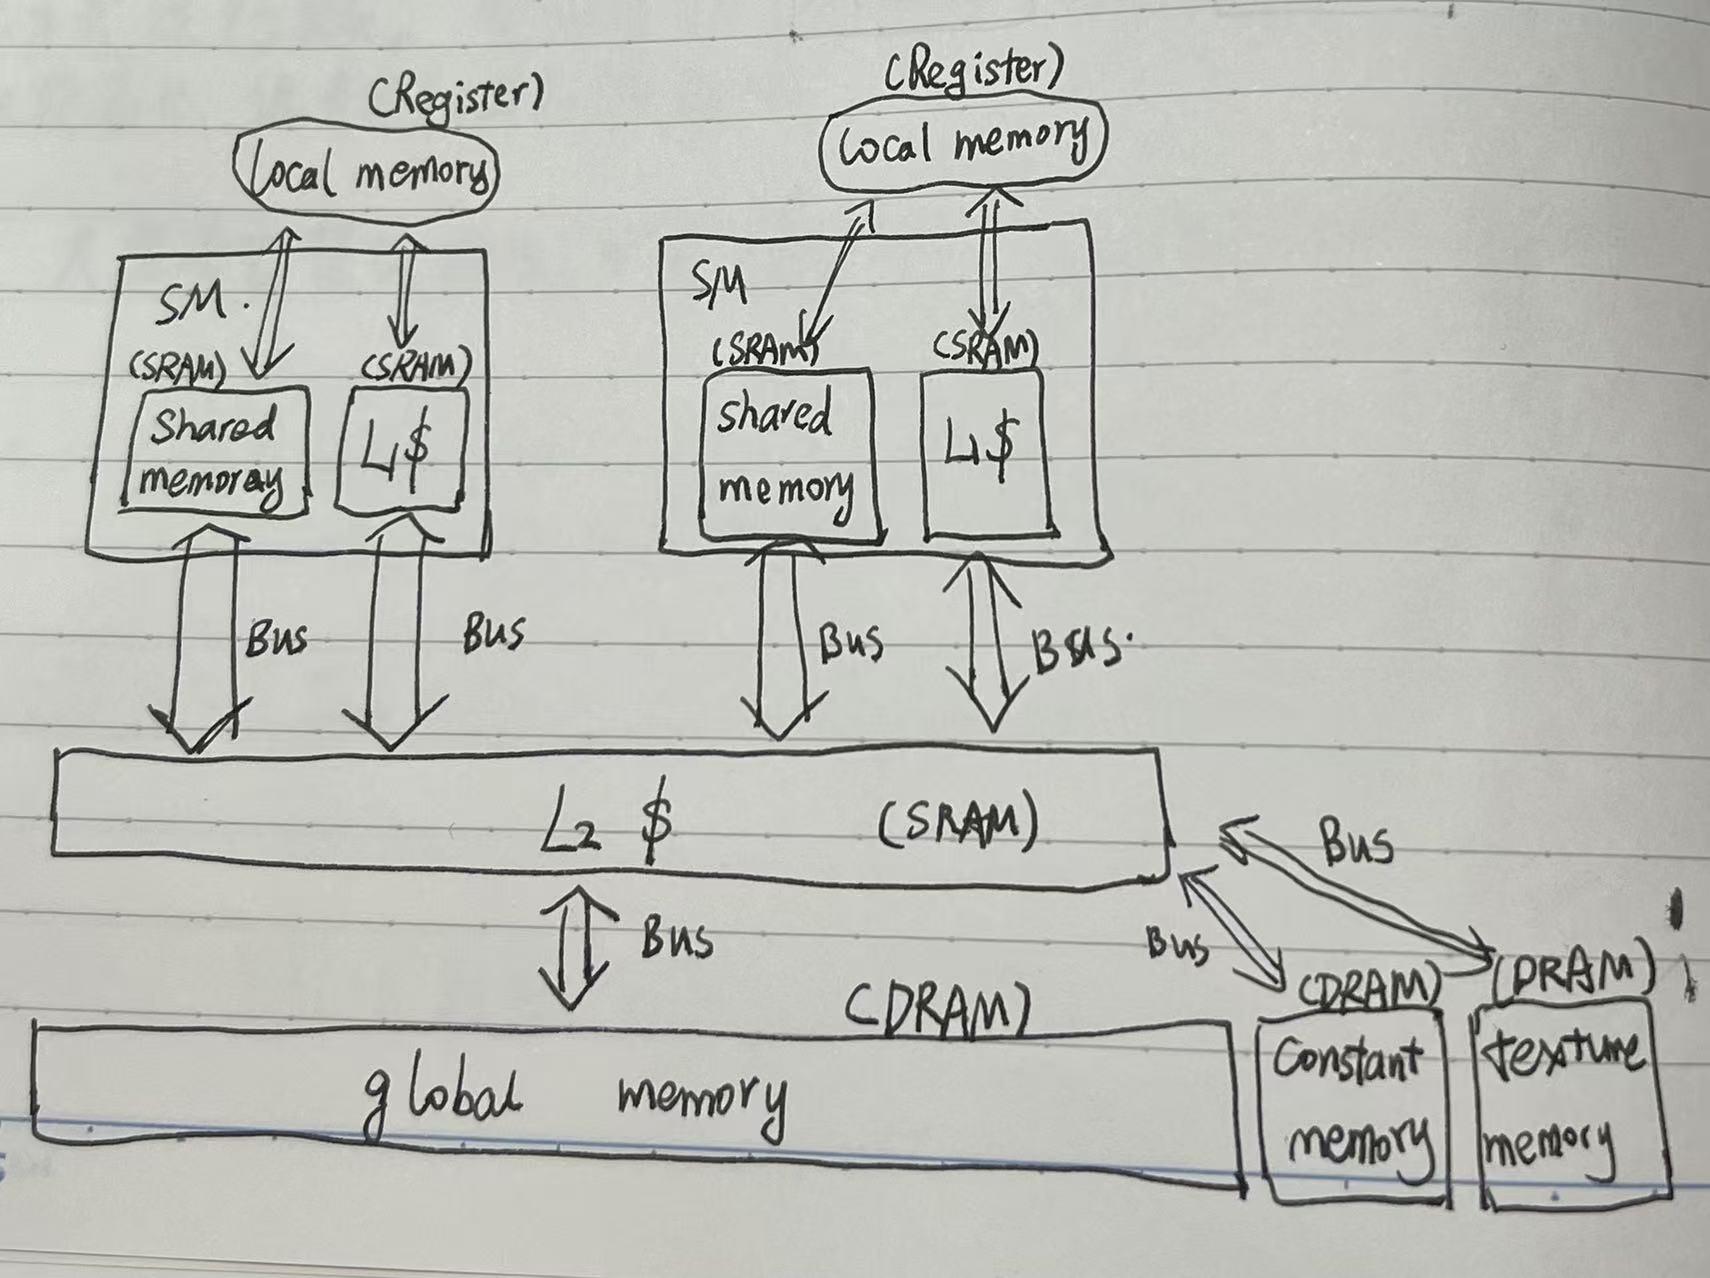 (Register)
local memory
(Register)
local memory
SM.
(SRAM)
(SRAM)
Shared
memoray
L1 $
SM
(SRAM)
(SRAM)
shared
memory
L1 $
Bus
Bus
Bus
Bus.
L2 $ (SRAM)
Bus
Bus
Bus
(DRAM)
global memory
(DRAM)
Constant
memory
(DRAM)
texture
memory